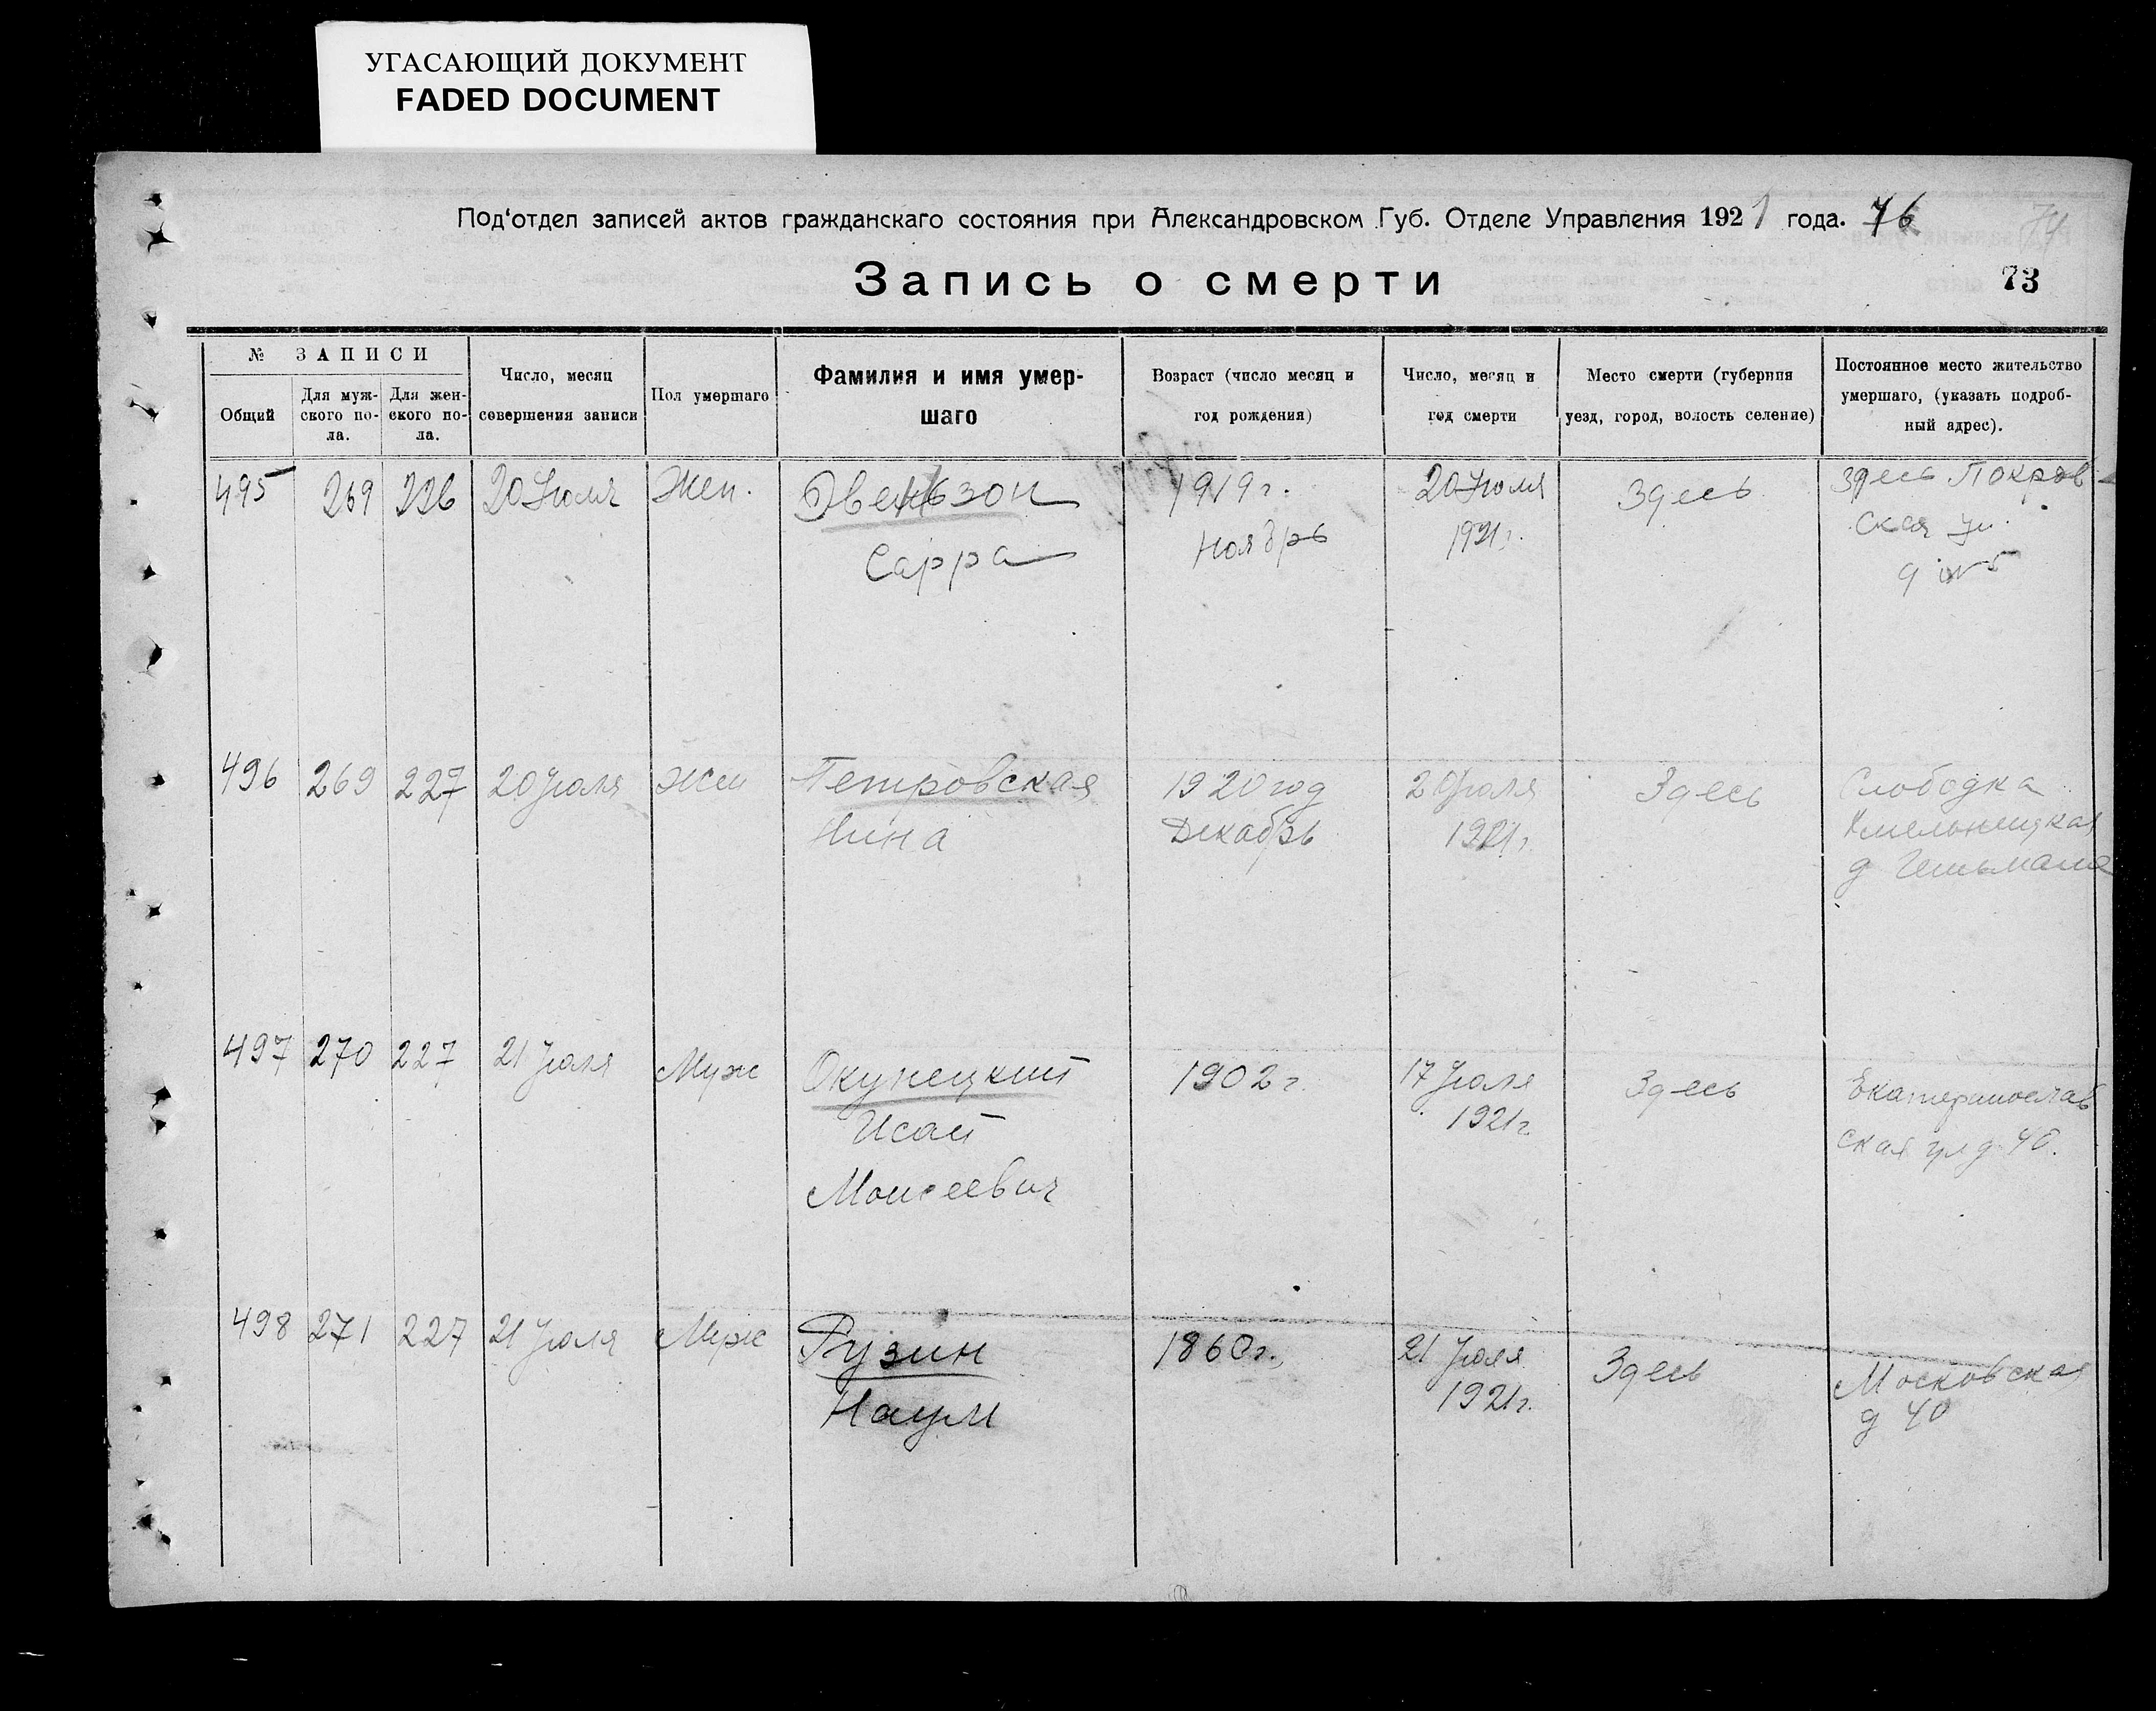 УГАСАЮЩИЙ ДОКУМЕНТ
FADED DOCUMENT
Под‘отдел записей актов гражданскаго состояния при Александровском Губ. Отделе Управления 1921 года. 76
74
Запись о смерти
73
№ ЗАПИСИ
Общий
Для муж-
ского по-
ла.
Для жен-
ского по-
ла.
Число, месяц
совершения записи
Пол умершаго
Фамилия и имя умер-
шаго
Возраст (число месяц и
год рождения)
Число, месяц и
год смерти
Место смерти (губерния
уезд, город, волость селение)
Постоянное место жительство
умершаго, (указать подроб-
ный адрес).
495 269 226 20 Июля Жен.
Сарра
1919 г.
Ноябрь
20 Июля
1921 г.
Здесь
Здесь Покров-
ская ул.
496 269 227 20 Июля Жен
Петровская
Нина
1920 год
Декабрь
20 Июля
1921 г.
Здесь
Слободка
д
497 270 227 21 Июля Муж
Окунецкий
Исай
Моисеевич
1902 г.
17 Июля
1921 г
Здесь
Екатеринослав
ская ул д. 40.
498 271 227 21 Июля Муж
Рузин
Наум
1860 г.
21 Июля
1921 г.
Здесь
Московская
д 40